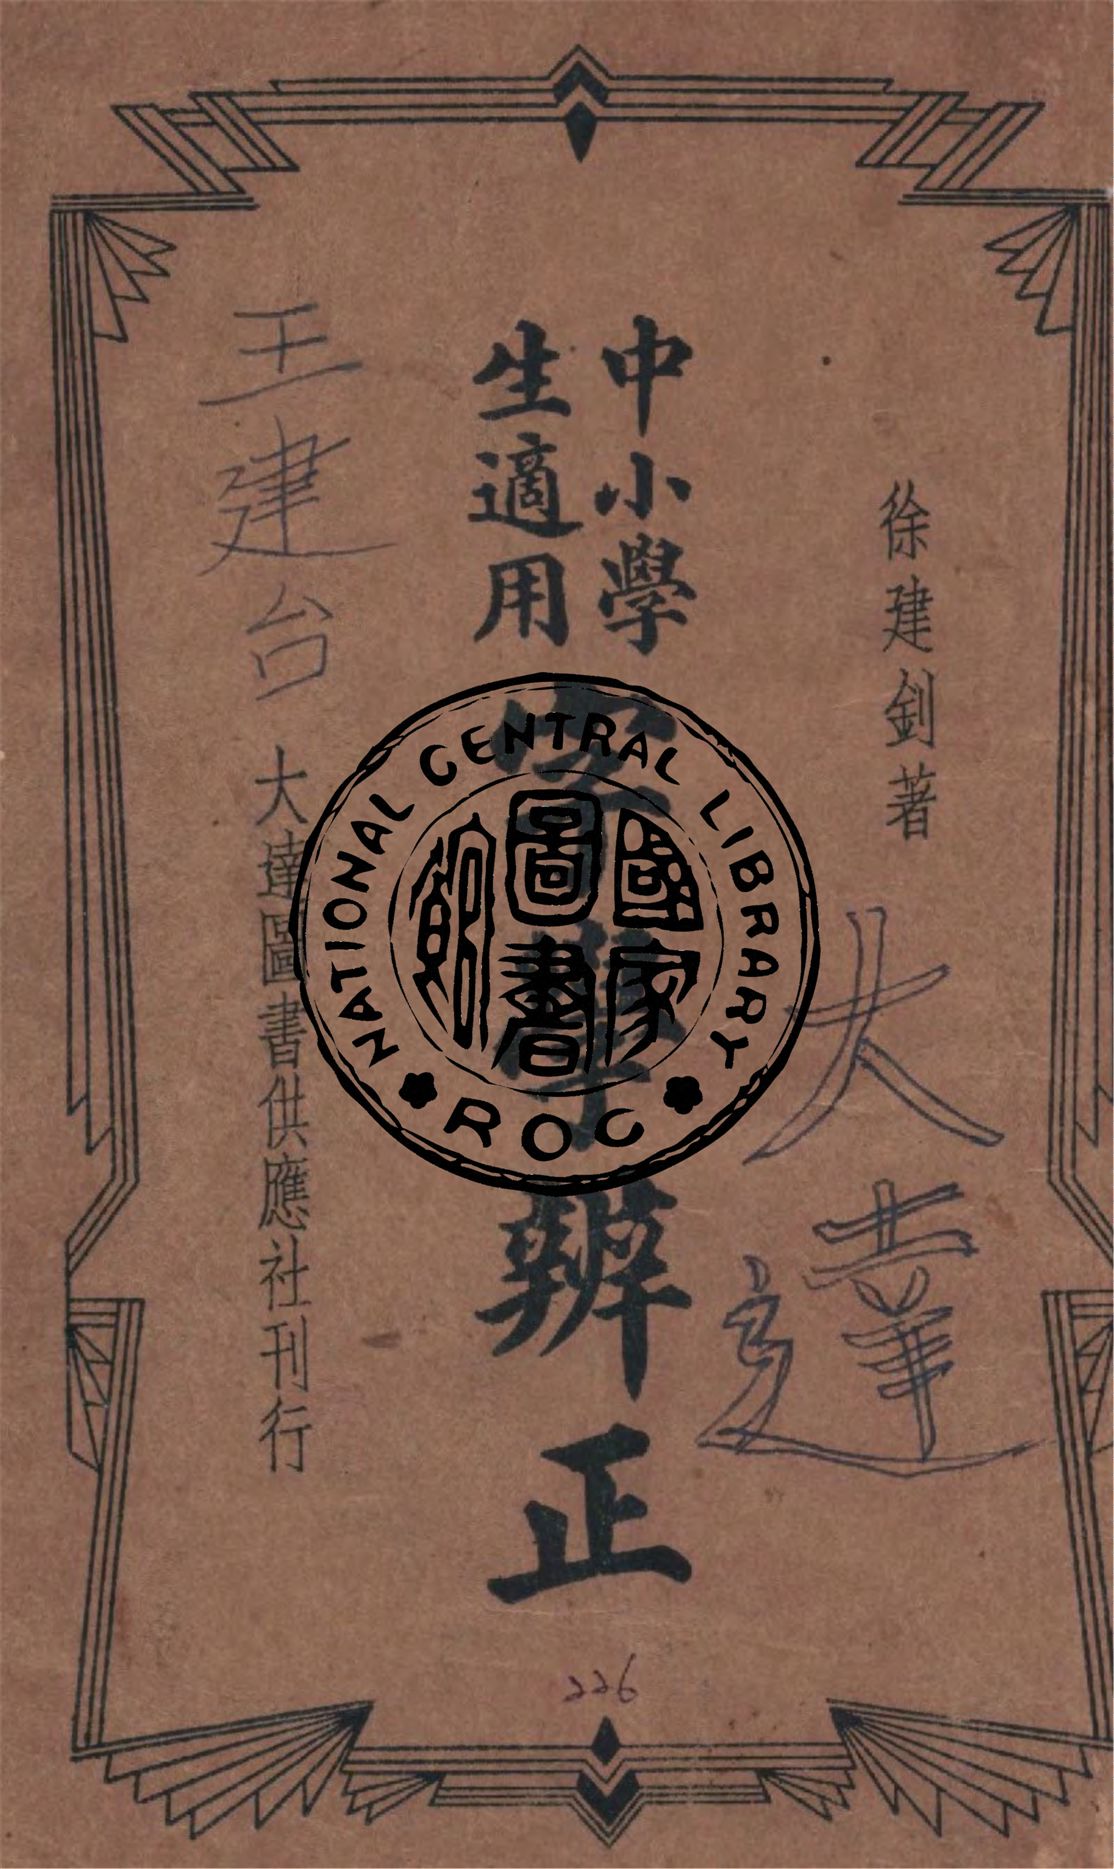 徐建釗著
中小學
生適用
字學辨正
大達圖書供應社刊行
王建台
大達
226
NATIONAL CENTRAL LIBRARY
ROC
國家
圖書
館